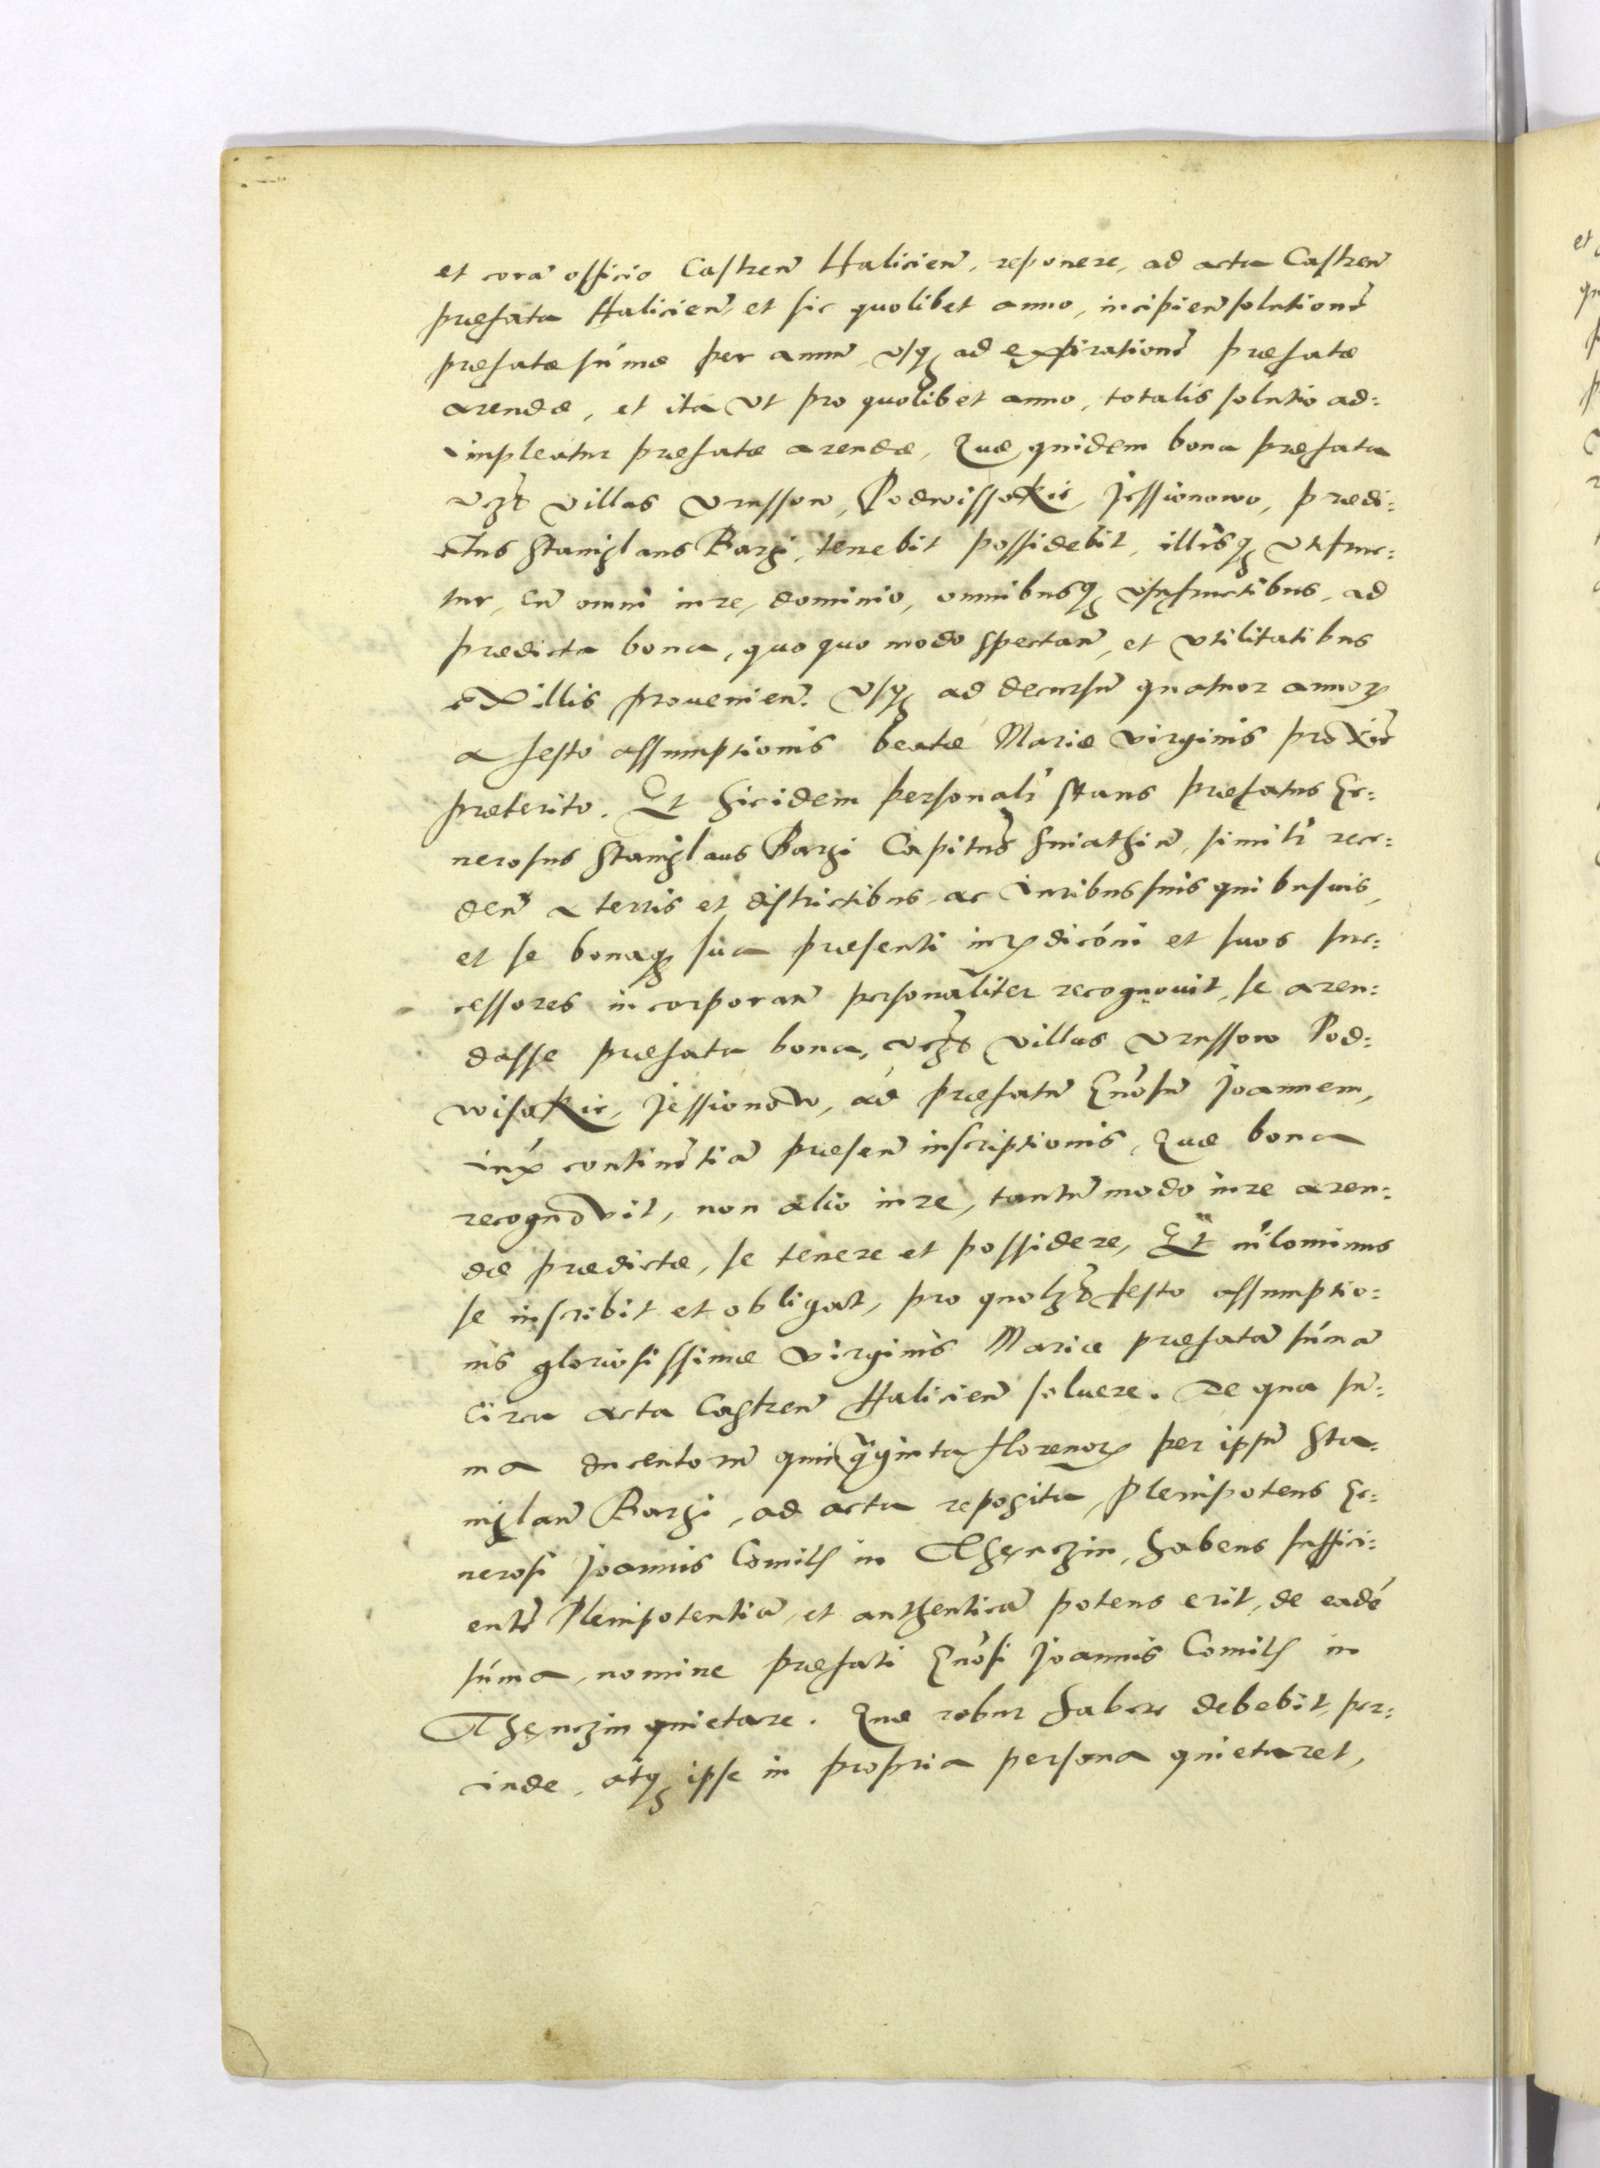 et corã officio Castreñ Halicieñ, reponere, ad acta Castreñ
præfata Halicieñ et sic quolibet anno, incipieñ solutionẽ
præfatæ sũmæ per annũ, usq; ad expirationẽ præfatæ
arendæ, et ita ut pro quolibet anno, totalis solutio ad:
impleatur præfatæ arendæ, Quæ quidem bona præfata
vcz̃t villas Vrussow, Podwissokie, Jessionowo, prædi:
ctus Stanislaus Barzi, tenebit possidebit, illisq; utifrue:
tur, cũ omni iure, dominio, omnibusq; usufructibus, ad
prædicta bona, quoquo modo spectañ, et utilitatibus
ex illis provenieñ. usq; ad decursũ quatuor annoꝝ
a festo assumptionis beatæ Mariæ Virginis proxiẽ
præterito. Et hic idem personalr̃ stans præfatus Ge:
nerosus Stanislaus Barzi Capitns̃ Sniathiñ, similr̃ rece:
deñ a terris et districtibus ac Iuribus suis quibusvis,
et se bonaq; sua præsenti iuꝝdicõni et suos suc:
cessores incorporañ personaliter recognovit, se aren:
dasse præfata bona, vcz̃t villas Vrussow Pod:
wisokie, Jessionow, ad præfatũ Gnõsũ Joannem,
iux̃ continẽtiã præseñ inscriptionis, Quæ bona
recognovit, non alio iure, tantũmodo iure aren:
dæ prædictæ, se tenere et possidere, Et nĩlominus
se inscribit et obligat, pro quolz̃t festo assumptio:
nis gloriosissimæ Virginis Mariæ præfatã sũmã
circa acta Castreñ Halicieñ solvere. De qua sũ:
ma ducentorũ quinq̃ginta florenoꝝ per ipsũ Sta:
nislaũ Barzi, ad acta reposita, Plenipotens Ge:
nerosi Joannis Comitis in Thęnczin, habens suffici:
entẽ Plenipotentiã, et authenticã potens erit, de eadẽ
sũma, nomine præfati Gnõsi Joannis Comitis in
Thęnczin quietare. Quæ robur habere debebit, per:
inde, atq; ipse in propria persona quietaret,